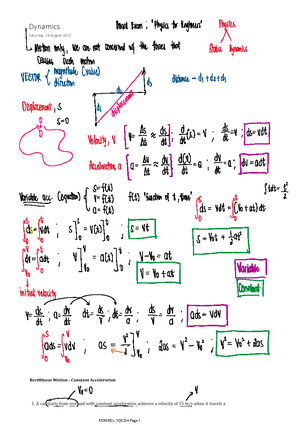 Dynamics
Saturday, 19 August 2023
Board Exam : "Physics for Engineers"
Physics
Statics Dynamics
Motion only, we are not concerned w/ the forces that
causes such motion
VECTOR magnitude (value)
direction
distance - d₁ + d₂ + d₃
d₁
d₂
d₃
displacement
Displacement, s
s=0
Velocity, V [ V = Δs/Δt ≈ ds/dt ] ; d(s)/dt = V ; ds/dt = V ; ds = vdt
Acceleration, a [ a = Δv/Δt ≈ dv/dt ] ; d(v)/dt = a ; dv/dt = a ; dv = adt
Variable acc. (equation) s = f(t)
v = f(t)
a = f(t)
f(t) "function of t, time"
∫t dt = t²/2
∫ds = vdt = ∫(V₀ + at) dt
∫ds = ∫vdt ; s] = V[t] ; s = vt
s = V₀t + ½at²
∫dv = ∫adt ; V] = a[t] ; V - V₀ = at
V = V₀ + at
Variable
Constant
initial velocity
V = ds/dt ; a = dv/dt dt = ds/V ; dt = dv/a ; ds/V = dv/a ; ads = vdv
∫ads = ∫vdv ; as = V²/2 ] ; 2as = V² - V₀² ; V² = V₀² + 2as
Rectilinear Motion - Constant Acceleration
V₀=0
V
1. A car starts from rest and with constant acceleration achieves a velocity of 15 m/s when it travels a